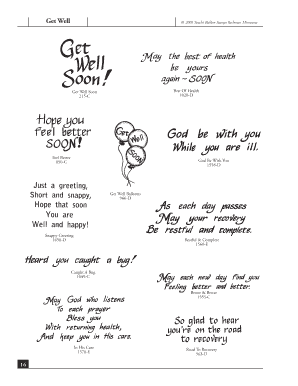 Get Well
Get
Well
Soon!
Get Well Soon
May the best of health
be yours
again ~ SOON
Best Of Health
Hope you
feel better
SOON!
Feel Better
Get
Well
Soon
Get Well Balloons
God be with you
While you are ill.
God Be With You
Just a greeting,
Short and snappy,
Hope that soon
You are
Well and happy!
Snappy Greeting
As each day passes
May your recovery
Be restful and complete.
Restful & Complete
Heard you caught a bug!
Caught A Bug
May each new day find you
Feeling better and better.
Better & Better
May God who listens
To each prayer
Bless you
With returning health,
And keep you in His care.
In His Care
So glad to hear
you're on the road
to recovery
Road To Recovery
16